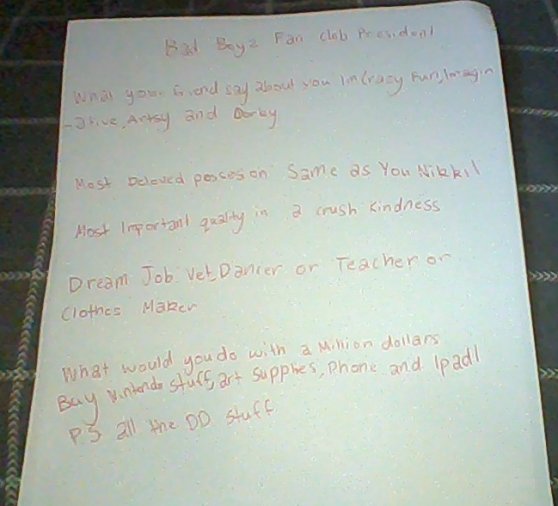 Bad Boyz Fan Club President
What your friend say about you Im Crazy Fun, Imagin
-ative, Artsy and Dorky
Most beloved possesion Same as You Nikki!
Most Important quality in a crush Kindness
Dream Job Vet, Dancer or Teacher or
Clothes Maker
What would you do with a Million dollars
Buy Nintendo Stuff, art supplies, Phone and Ipad!
P.S all the DD Stuff